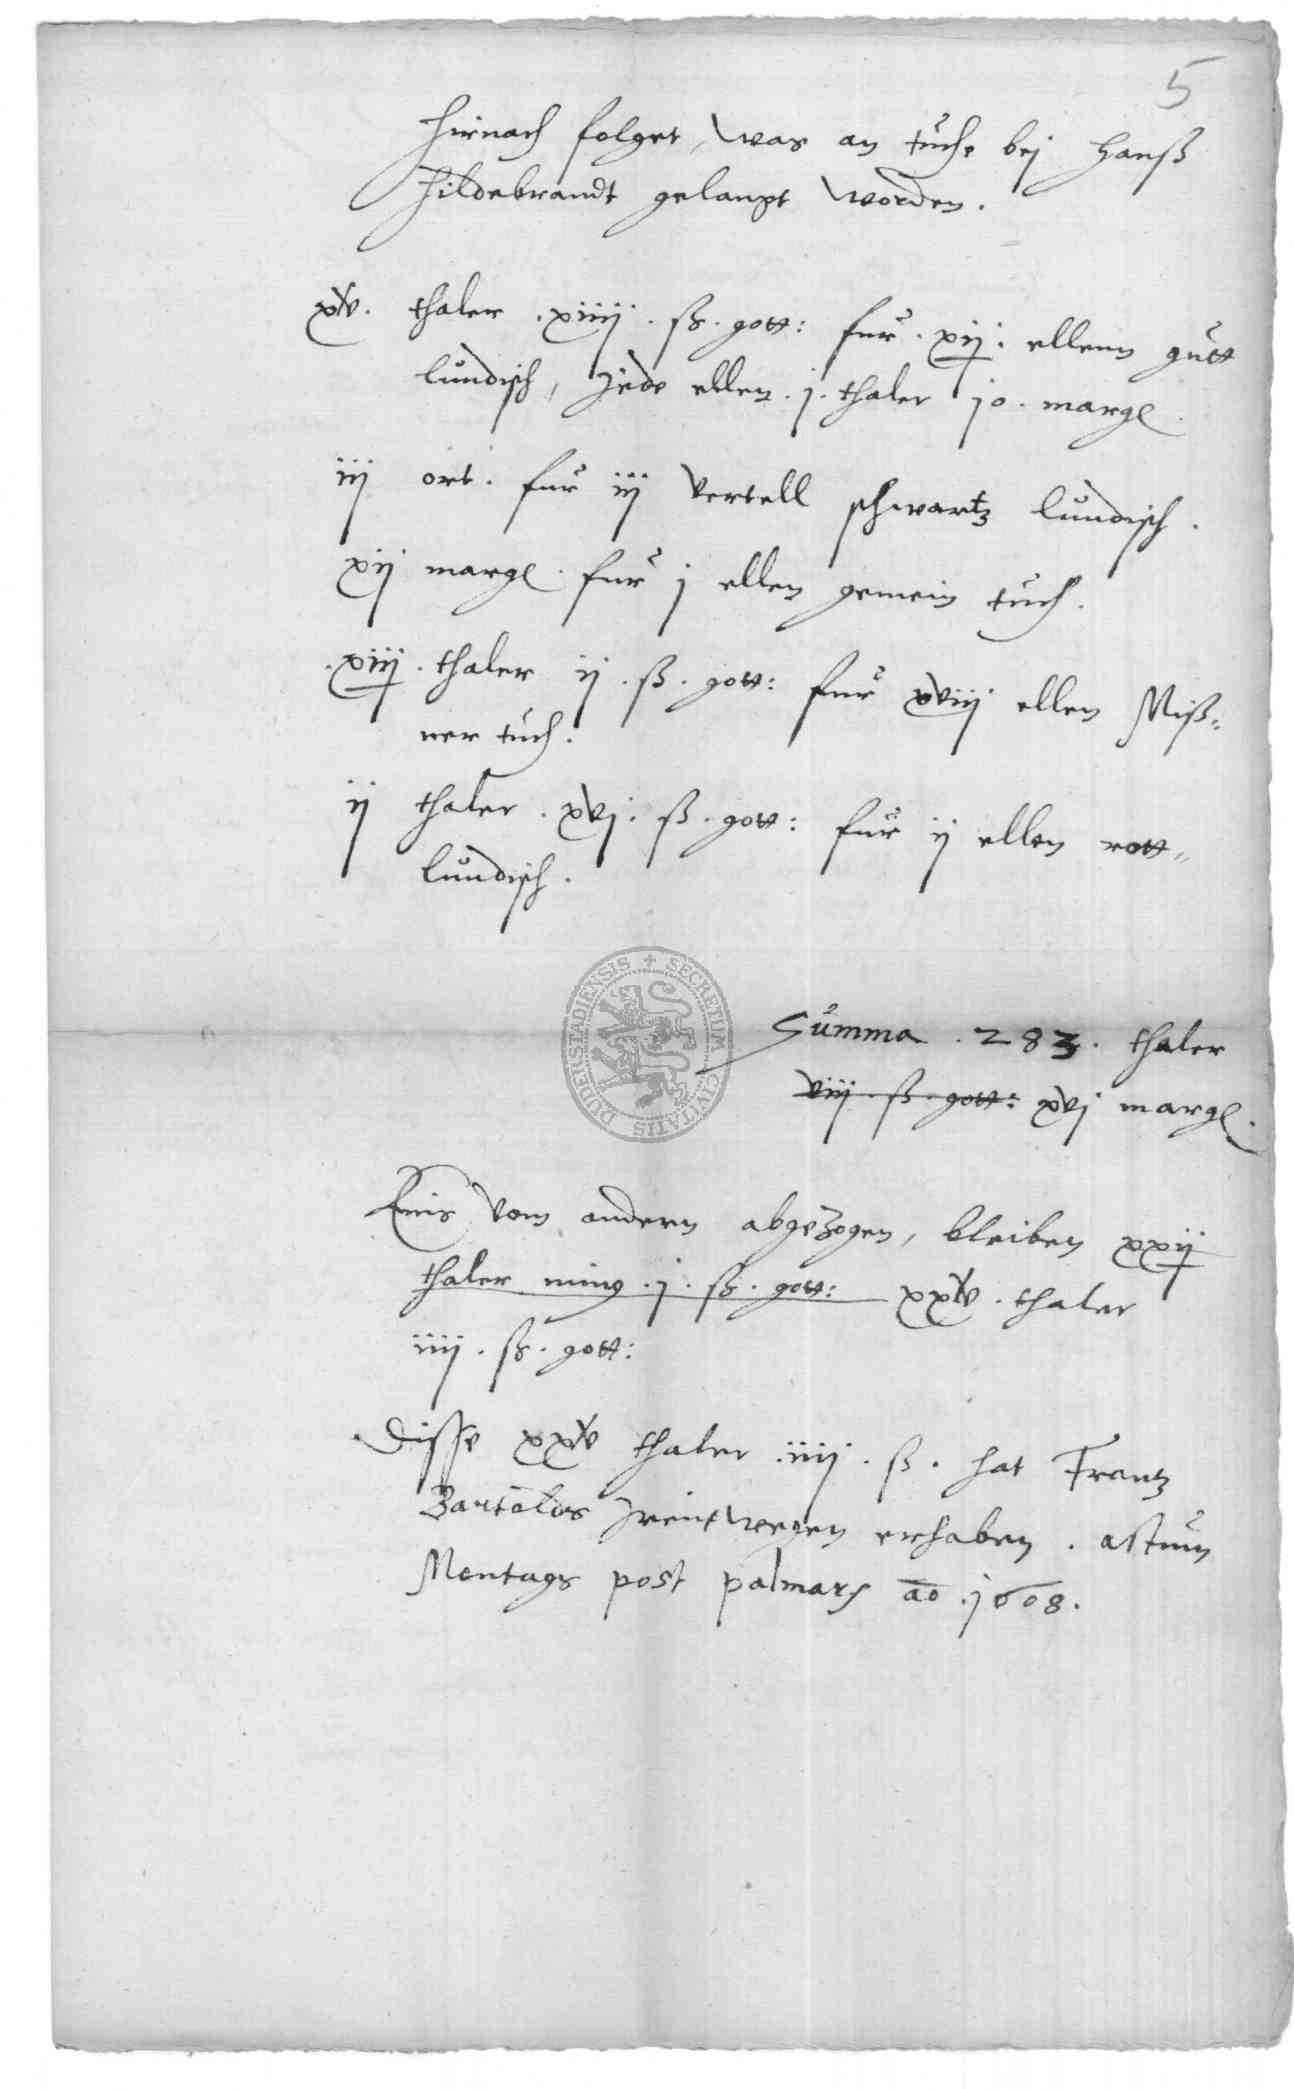 5
Hirnach folget, was an tuche bej Hanß
Hildebrandt gelangt worden.
xv. thaler .xiiij. ß. gott: fur .xij. ellenn gutt
lundisch, Jede ellen .j. thaler 10. margl.
iij ort. fur iij vertell schwartz lundisch.
xij margl. fur j ellen gemein tuch.
.xiij. thaler ij. ß. gott: fur xviij ellen Miß-
ner tuch.
ij thaler .xvj. ß. gott: fur ij ellen rott-
lundisch.
SECRETUM CIVITATIS DUDERSTADIENSIS
Summa .283. thaler
viij. ß. gott: xvj margl.
Eins vom andern abgezogen, bleiben xxij
thaler min9 .j. ß. gott: xxv. thaler
iiij. ß. gott:
Disse xxv thaler .iiij. ß. hat Frantz
Bartolds Irentwegen erhaben. actum
Montags post palmarum ao .1608.